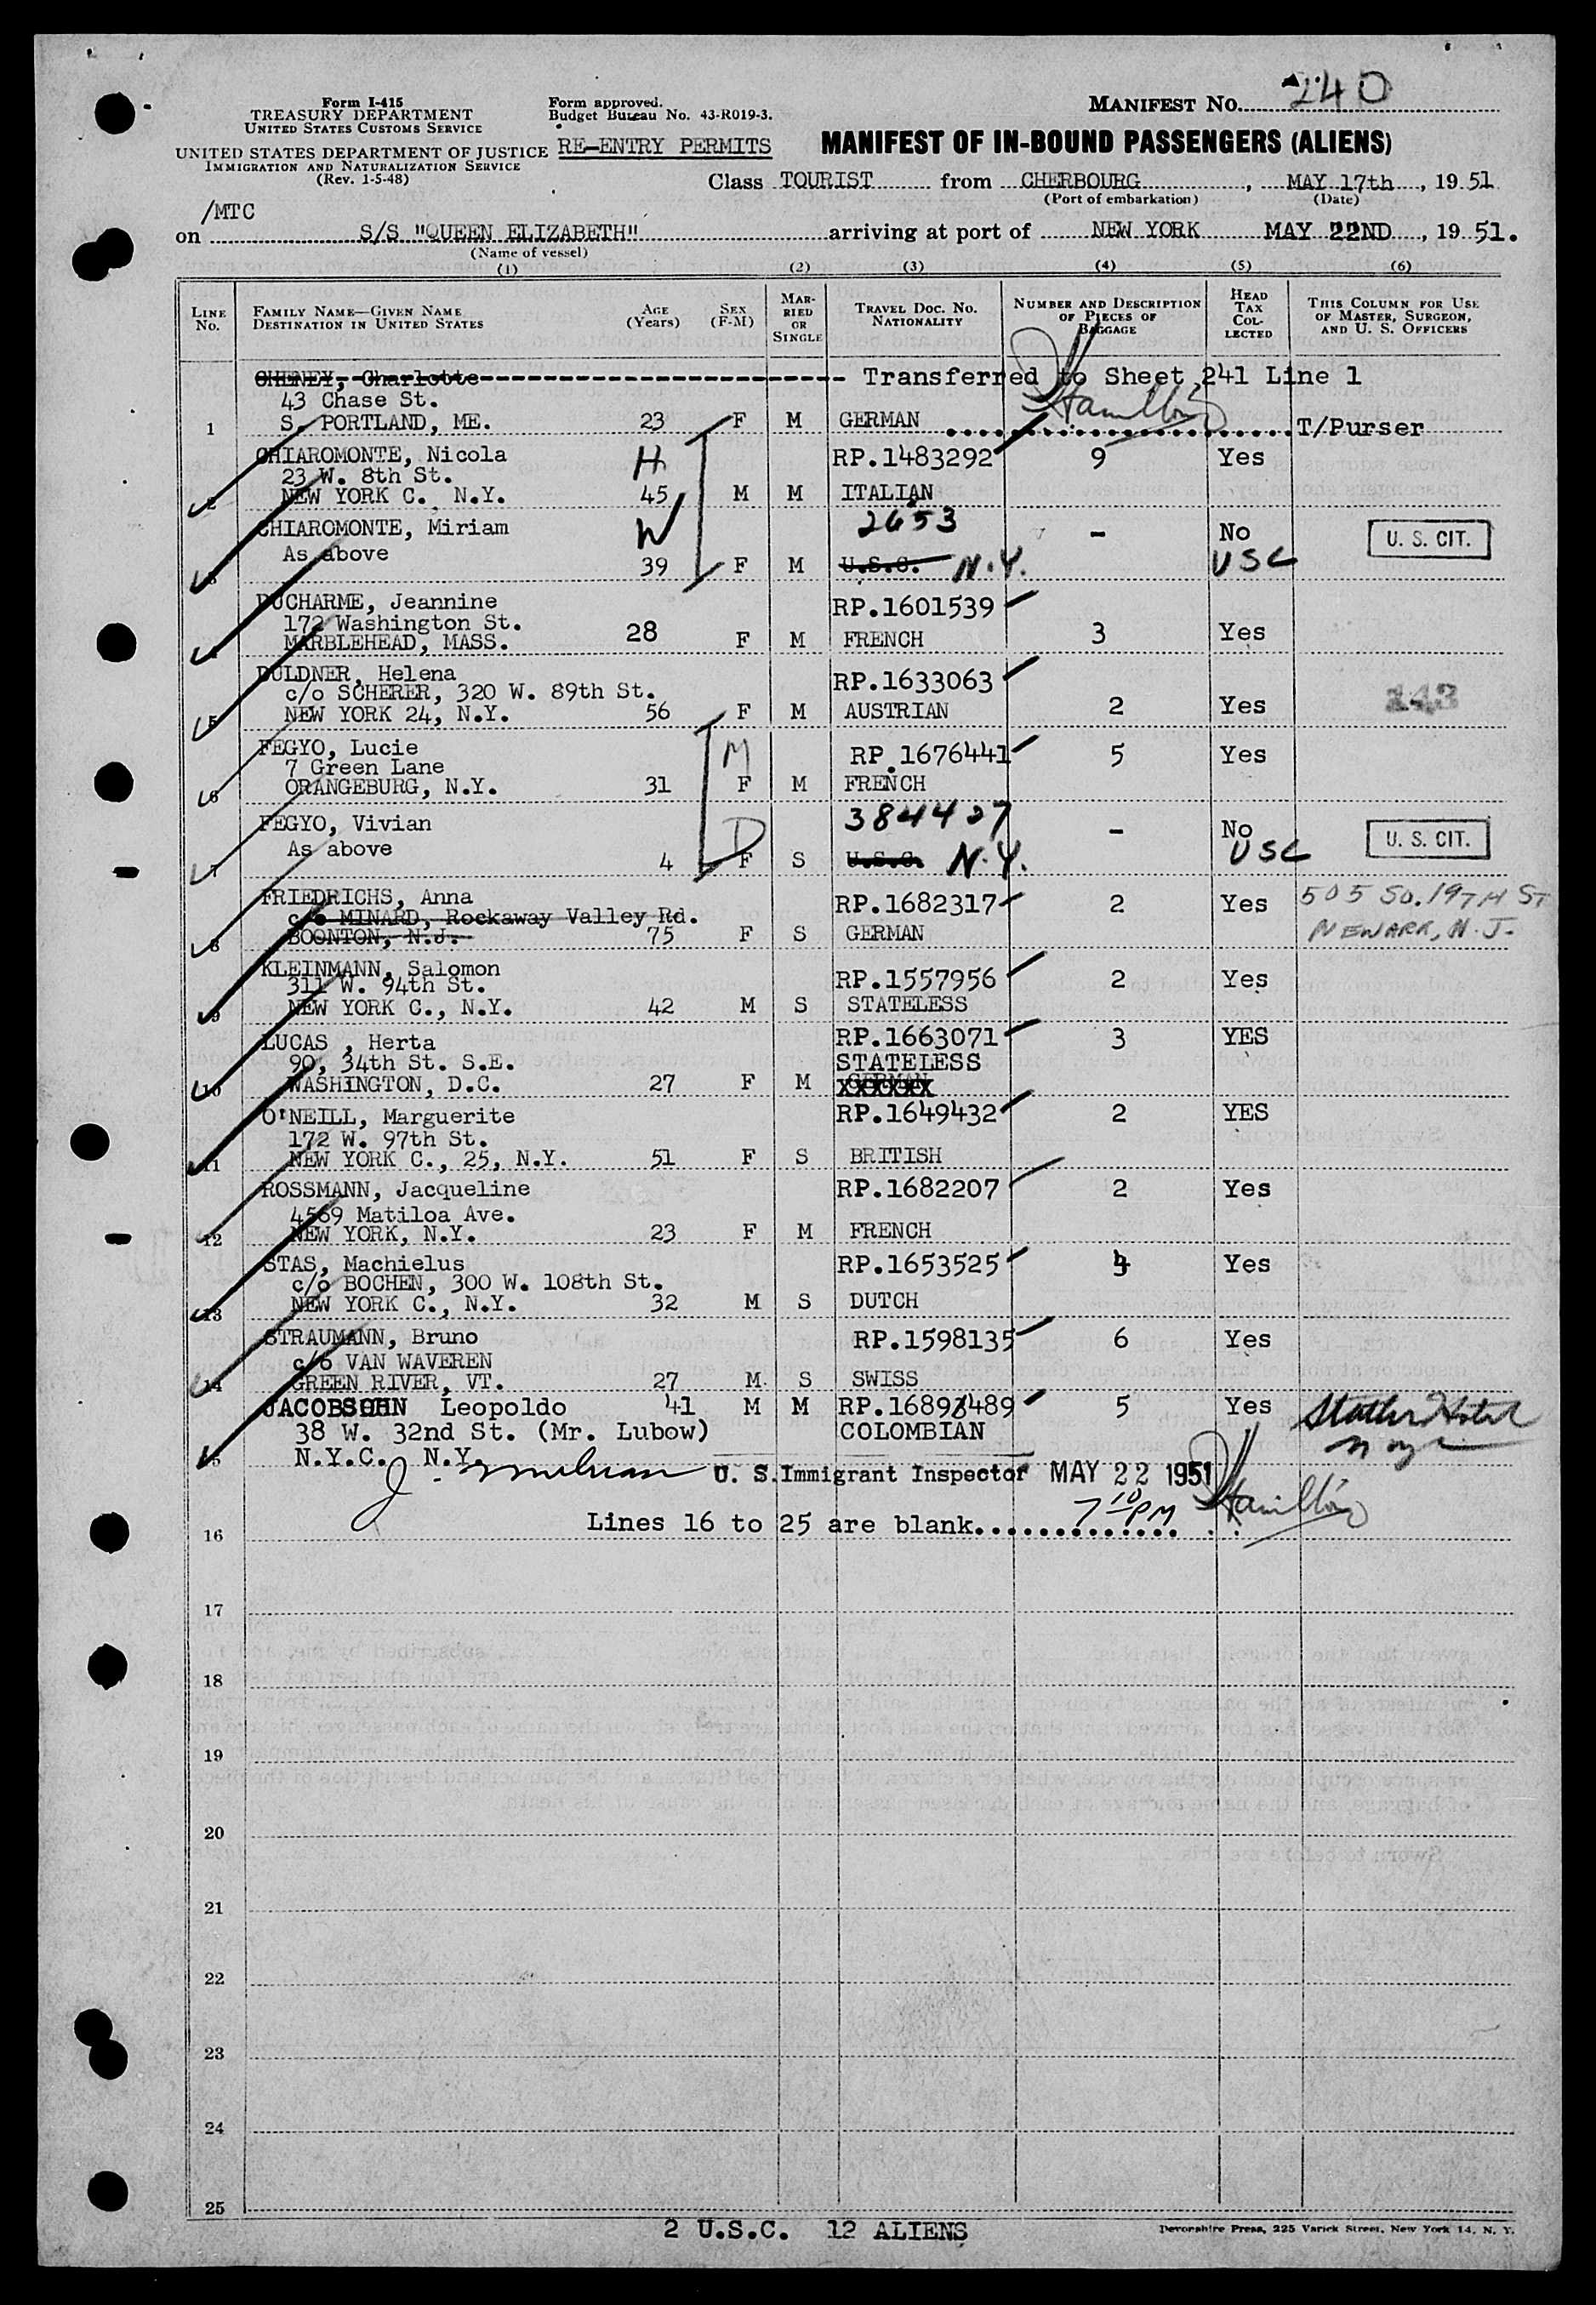 MANIFEST NO. 240
Form I-415
TREASURY DEPARTMENT
UNITED STATES CUSTOMS SERVICE
Form approved.
Budget Bureau No. 43-R019-3.
UNITED STATES DEPARTMENT OF JUSTICE
IMMIGRATION AND NATURALIZATION SERVICE
(Rev. 1-5-48)
RE-ENTRY PERMITS
MANIFEST OF IN-BOUND PASSENGERS (ALIENS)
Class TOURIST from CHERBOURG, MAY 17th, 1951
(Port of embarkation) (Date)
/MTC
on S/S "QUEEN ELIZABETH" arriving at port of NEW YORK MAY 22ND, 1951.
(Name of vessel)
(1) (2) (3) (4) (5) (6)
LINE No. FAMILY NAME—GIVEN NAME DESTINATION IN UNITED STATES AGE (Years) SEX (F-M) MARRIED OR SINGLE TRAVEL DOC. NO. NATIONALITY NUMBER AND DESCRIPTION OF PIECES OF BAGGAGE HEAD TAX COLLECTED THIS COLUMN FOR USE OF MASTER, SURGEON, AND U. S. OFFICERS
CHENEY, Charlotte Transferred to Sheet 241 Line 1
43 Chase St. Hamilton
1 S. PORTLAND, ME. 23 F M GERMAN T/Purser
CHIAROMONTE, Nicola H RP.1483292 9 Yes
23 W. 8th St.
2 NEW YORK C. N.Y. 45 M M ITALIAN
CHIAROMONTE, Miriam W 2653 - No U. S. CIT.
As above
3 39 F M U.S.C. N.Y. USC
DUCHARME, Jeannine RP.1601539
172 Washington St. 28 3 Yes
4 MARBLEHEAD, MASS. F M FRENCH
DULDNER, Helena RP.1633063
c/o SCHERER, 320 W. 89th St. 143
5 NEW YORK 24, N.Y. 56 F M AUSTRIAN 2 Yes
FEGYO, Lucie M RP.1676441 5 Yes
7 Green Lane
6 ORANGEBURG, N.Y. 31 F M FRENCH
FEGYO, Vivian D 384427 - No U. S. CIT.
As above
7 4 F S U.S.C. N.Y. USC
FRIEDRICHS, Anna RP.1682317 2 Yes 505 So. 19TH ST
c/o MINARD, Rockaway Valley Rd.
8 BOONTON, N.J. 75 F S GERMAN NEWARK, N.J.
KLEINMANN, Salomon RP.1557956 2 Yes
311 W. 94th St.
9 NEW YORK C., N.Y. 42 M S STATELESS
LUCAS , Herta RP.1663071 3 YES
90, 34th St. S.E. STATELESS
10 WASHINGTON, D.C. 27 F M GERMAN
O'NEILL, Marguerite RP.1649432 2 YES
172 W. 97th St.
11 NEW YORK C., 25, N.Y. 51 F S BRITISH
ROSSMANN, Jacqueline RP.1682207 2 Yes
4569 Matiloa Ave.
12 NEW YORK, N.Y. 23 F M FRENCH
STAS, Machielus RP.1653525 Yes
c/o BOCHEN, 300 W. 108th St.
13 NEW YORK C., N.Y. 32 M S DUTCH
STRAUMANN, Bruno RP.1598135 6 Yes
c/o VAN WAVEREN
14 GREEN RIVER, VT. 27 M S SWISS
JACOBSOHN Leopoldo 41 M M 5 Yes Statler Hotel
38 W. 32nd St. (Mr. Lubow) COLOMBIAN
15 N.Y.C. N.Y.
U. S. Immigrant Inspector MAY 22 1951 Hamilton
7 10 PM
16 Lines 16 to 25 are blank
17
18
19
20
21
22
23
24
25
2 U.S.C. 12 ALIENS
Devonshire Press, 225 Varick Street, New York 14, N. Y.